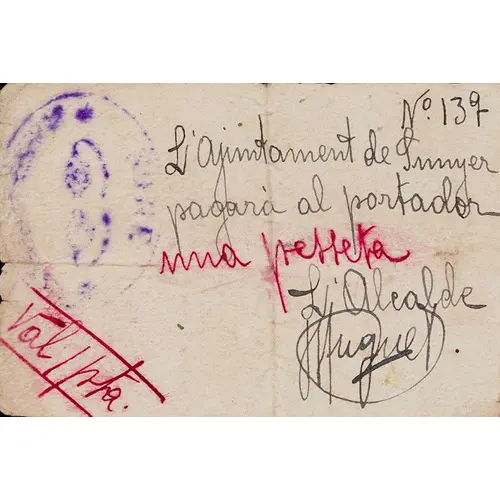 Nº 139
L'Ajuntament de Sunyer
pagará al portador
una pesseta
L'Alcalde
Huguet
Val 1 pta.